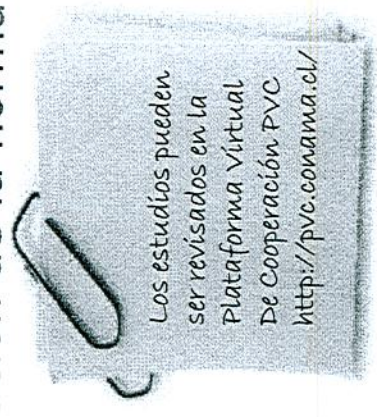 Los estudios pueden
ser revisados en la
Plataforma Virtual
De Cooperación PVC
http://pvc.conama.cl/